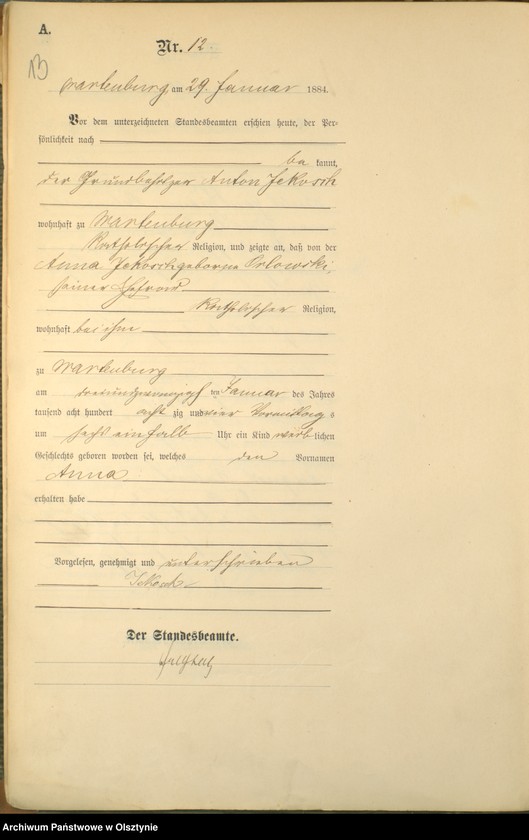 A.
Nr. 12.
13
Wartenburg am 29. Januar 1884.
Vor dem unterzeichneten Standesbeamten erschien heute, der Per-
sönlichkeit nach
be kannt,
der Grundbesitzer Anton Jekosch
wohnhaft zu Wartenburg
Katholischer Religion, und zeigte an, daß von der
Anna Jekosch geborne Orlowski,
seiner Ehefrau
Katholischer Religion,
wohnhaft bei ihm
zu Wartenburg
am dreiundzwanzigsten Januar des Jahres
tausend acht hundert acht zig und vier Vormittags
um sechs ein halb Uhr ein Kind weib lichen
Geschlechts geboren worden sei, welches den Vornamen
Anna
erhalten habe
Vorgelesen, genehmigt und unterschrieben
Jekosch
Der Standesbeamte.
Archiwum Państwowe w Olsztynie